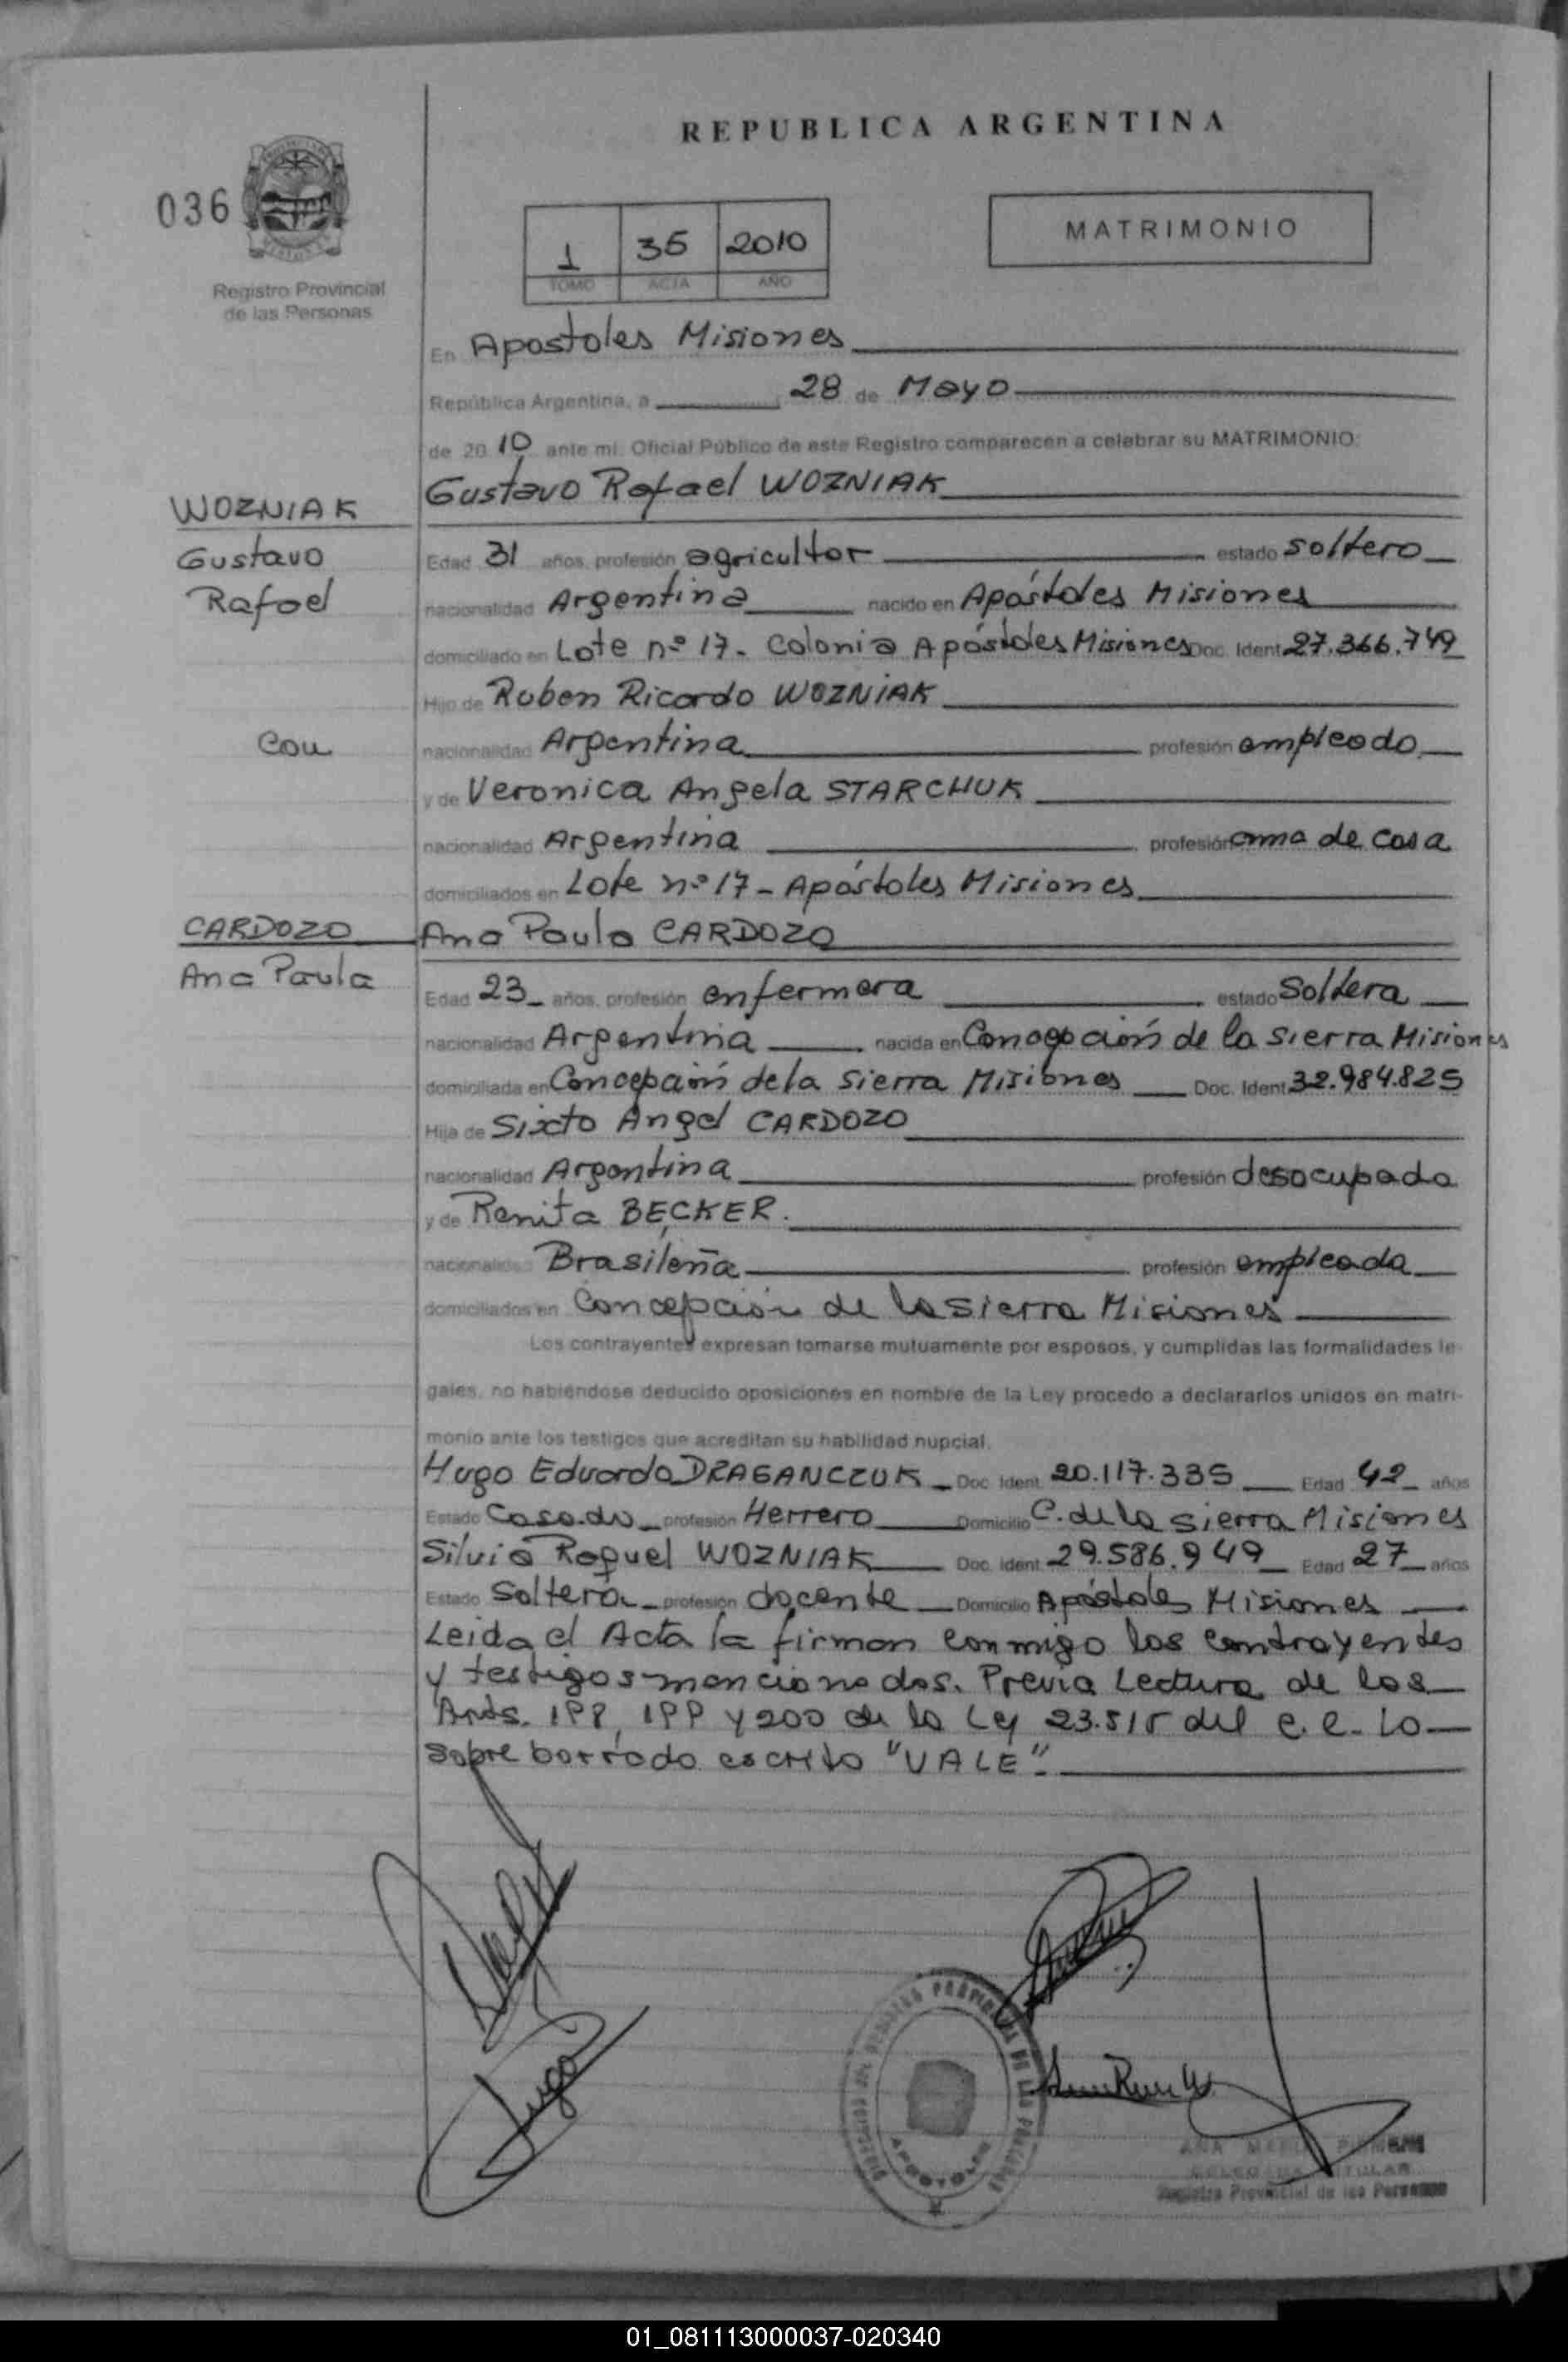 REPUBLICA ARGENTINA
036
MATRIMONIO
1 35 2010
TOMO ACTA AÑO
Registro Provincial
de las Personas
En Apostoles Misiones
República Argentina, a 28 de Mayo
de 2010 ante mi. Oficial Público de este Registro comparecen a celebrar su MATRIMONIO:
WOZNIAK
Gustavo
Rafael
Gustavo Rafael WOZNIAK
Edad 31 años, profesión agricultor estado soltero
nacionalidad Argentina nacido en Apóstoles Misiones
domiciliado en Lote nº 17- Colonia Apóstoles Misiones Doc. Ident 27.366.749
Hijo de Ruben Ricardo WOZNIAK
Con
nacionalidad Argentina profesión empleado
y de Veronica Angela STARCHUK
nacionalidad Argentina profesión ama de casa
domiciliados en Lote nº 17- Apóstoles Misiones
CARDOZO
Ana Paula
Ana Paula CARDOZO
Edad 23 años, profesión enfermera estado Soltera
nacionalidad Argentina nacida en Concepción de la Sierra Misiones
domiciliada en Concepción de la Sierra Misiones Doc. Ident 32.984.825
Hija de Sixto Angel CARDOZO
nacionalidad Argentina profesión desocupada
y de Renita BECKER.
nacionalidad Brasileña profesión empleada
domiciliados en Concepción de la Sierra Misiones
Los contrayentes expresan tomarse mutuamente por esposos, y cumplidas las formalidades le-
gales, no habiéndose deducido oposiciones en nombre de la Ley procedo a declararlos unidos en matri-
monio ante los testigos que acreditan su habilidad nupcial.
Hugo Eduardo DRAGANCZUK Doc. Ident. 20.117.335 Edad 42 años
Estado Casado profesión Herrero Domicilio C. de la Sierra Misiones
Silvia Raquel WOZNIAK Doc. Ident. 29.586.949 Edad 27 años
Estado Soltera profesión docente Domicilio Apóstoles Misiones
Leida el Acta la firman conmigo los contrayentes
y testigos mencionados. Previa Lectura de los
Arts. 198, 199 y 200 de la Ley 23.515 del C.C. Lo
sobre borrado escrito "VALE".
Hugo
APOSTOLES
ANA
TITULAR
Registro Provincial de las Personas
01_081113000037-020340